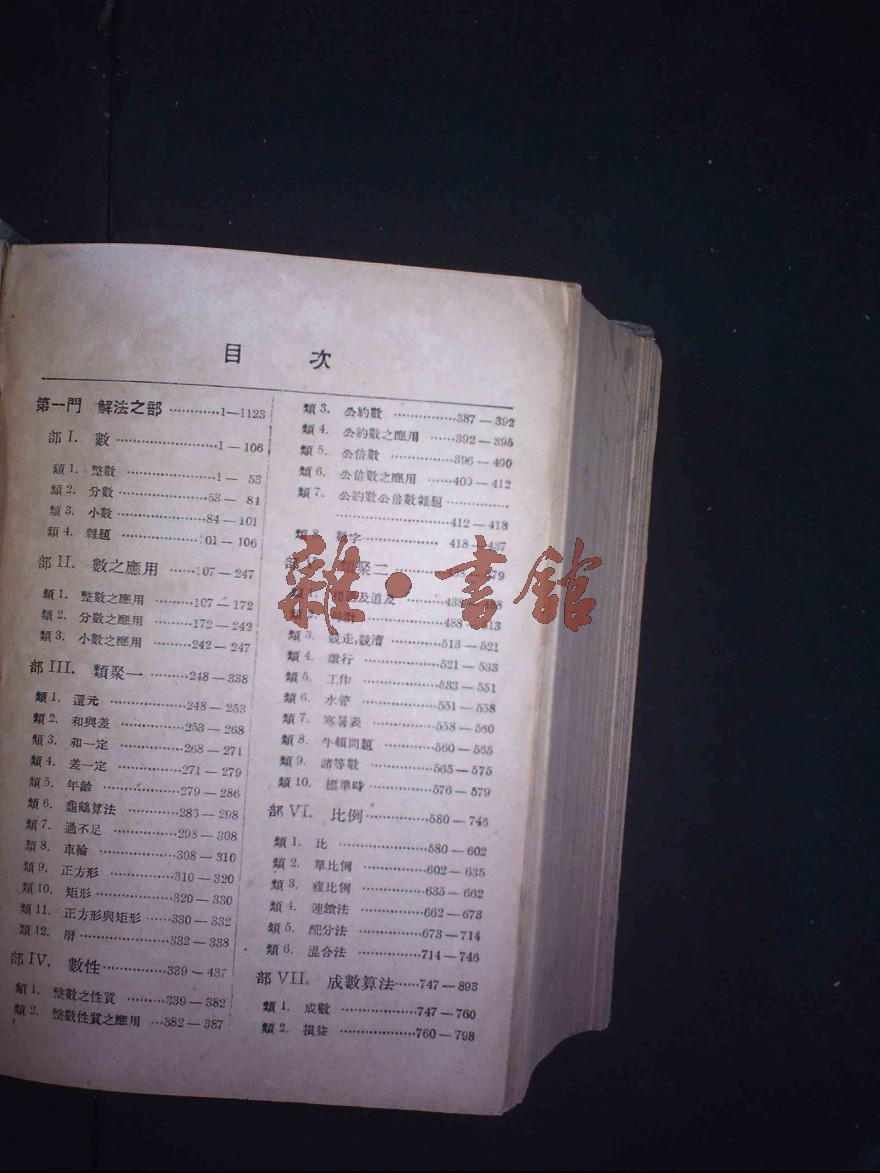 目 次
第一門 解法之部 …………1—1123
部 I. 數 ……………………1—106
類 1. 整數 ……………………1— 53
類 2. 分數 ……………………53— 84
類 3. 小數 ……………………84—101
類 4. 雜題 ……………………01—106
部 II. 數之應用 ……107—247
類 1. 整數之應用 …………107—172
類 2. 分數之應用 …………172—242
類 3. 小數之應用 …………242—247
部 III. 類聚一 …………248—338
類 1. 還元 …………………248—253
類 2. 和與差 ………………253—268
類 3. 和一定 ………………268—271
類 4. 差一定 ………………271—279
類 5. 年齡 …………………279—286
類 6. 龜鶴算法 ……………286—298
類 7. 過不足 ………………298—308
類 8. 車輪 …………………308—310
類 9. 正方形 ………………310—320
類 10. 矩形 …………………320—330
類 11. 正方形與矩形 ……330—332
類 12. 曆 ……………………332—338
部 IV. 數性 ………………339—437
類 1. 整數之性質 …………339—382
類 2. 整數性質之應用 …382—387
類 3. 公約數 ………………387—392
類 4. 公約數之應用 ……392—395
類 5. 公倍數 ………………396—400
類 6. 公倍數之應用 ……400—412
類 7. 公約數公倍數雜題 …………
…………………412—418
類 8. 數字 ………………… 418—437
部 V. 類聚二
類 1. 及追及
類 2. 488
類 3. 競走,競漕 …………513—521
類 4. 環行 …………………521—533
類 5. 工作 …………………533—551
類 6. 水管 …………………551—558
類 7. 寒暑表 ………………558—560
類 8. 牛頓問題 ……………560—565
類 9. 諸等數 ………………565—575
類 10. 標準時 ………………576—579
部 VI. 比例 ………………580—746
類 1. 比 ……………………580—602
類 2. 單比例 ………………602—635
類 3. 複比例 ………………635—662
類 4. 連鎖法 ………………662—673
類 5. 配分法 ………………673—714
類 6. 混合法 ………………714—746
部 VII. 成數算法 ……747—893
類 1. 成數 …………………747—760
類 2. 損益 …………………760—798
雜·書館